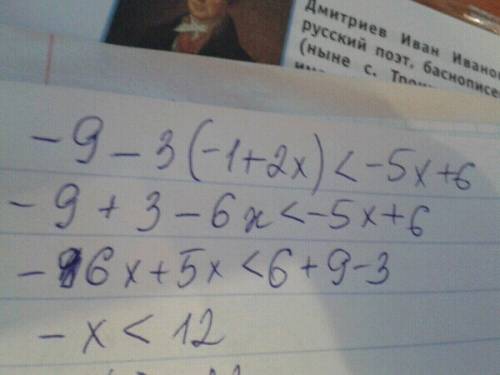 Дмитриев Иван Иванов
русский поэт, баснописе
(ныне с.
-9-3(-1+2x)<-5x+6
-9+3-6x<-5x+6
-6x+5x<6+9-3
-x<12